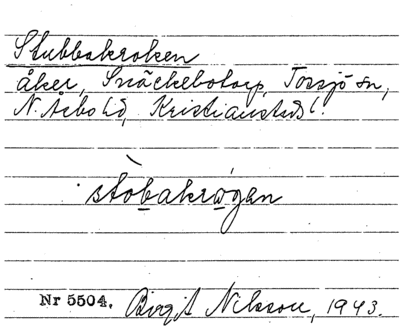 Stubbakroken
åker, Snäckebotorp, Torsjö sn,
N. Åsbo hd, Kristianstads l.
stòbakrógan
Nr 5504. Birgit Nilsson, 1943.